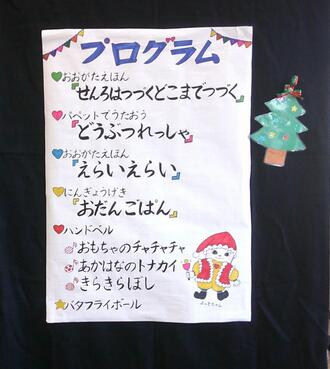 プログラム
おおがたえほん
『せんろはつづくどこまでつづく』
パペットでうたおう
『どうぶつれっしゃ』
おおがたえほん
『えらいえらい』
にんぎょうげき
『おだんごぱん』
ハンドベル
おもちゃのチャチャチャ
あかはなのトナカイ
きらきらぼし
バタフライボール